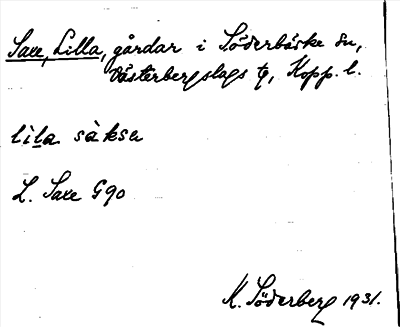 Saxe, Lilla, gårdar i Söderbärke sn,
Västerbergslags tg, Kopp. l.
lila sàksa
L. Saxe G90
K. Söderberg 1931.